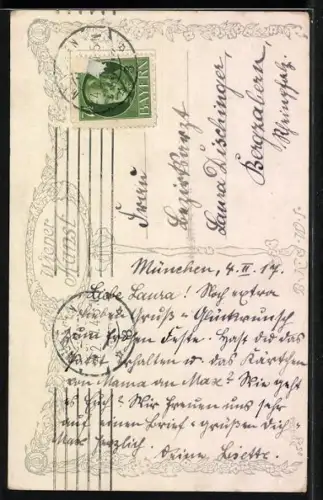 BAYERN
Wiener
Kunst
Frau
Bezirksarzt
Laura Dischinger,
Bergzabern,
Rheinpfalz.
B.K.W.I.
München, 4. II. 17.
Liebe Laura! Noch extra
Gruß u. Glückwunsch
zum Feste. Hast Du das
erhalten u. das Kärtchen
von Mama an Max? Wie geht
es Euch? Wir freuen uns sehr
auf einen Brief u. grüßen Dich u.
Max herzlich. Deine Lisette.